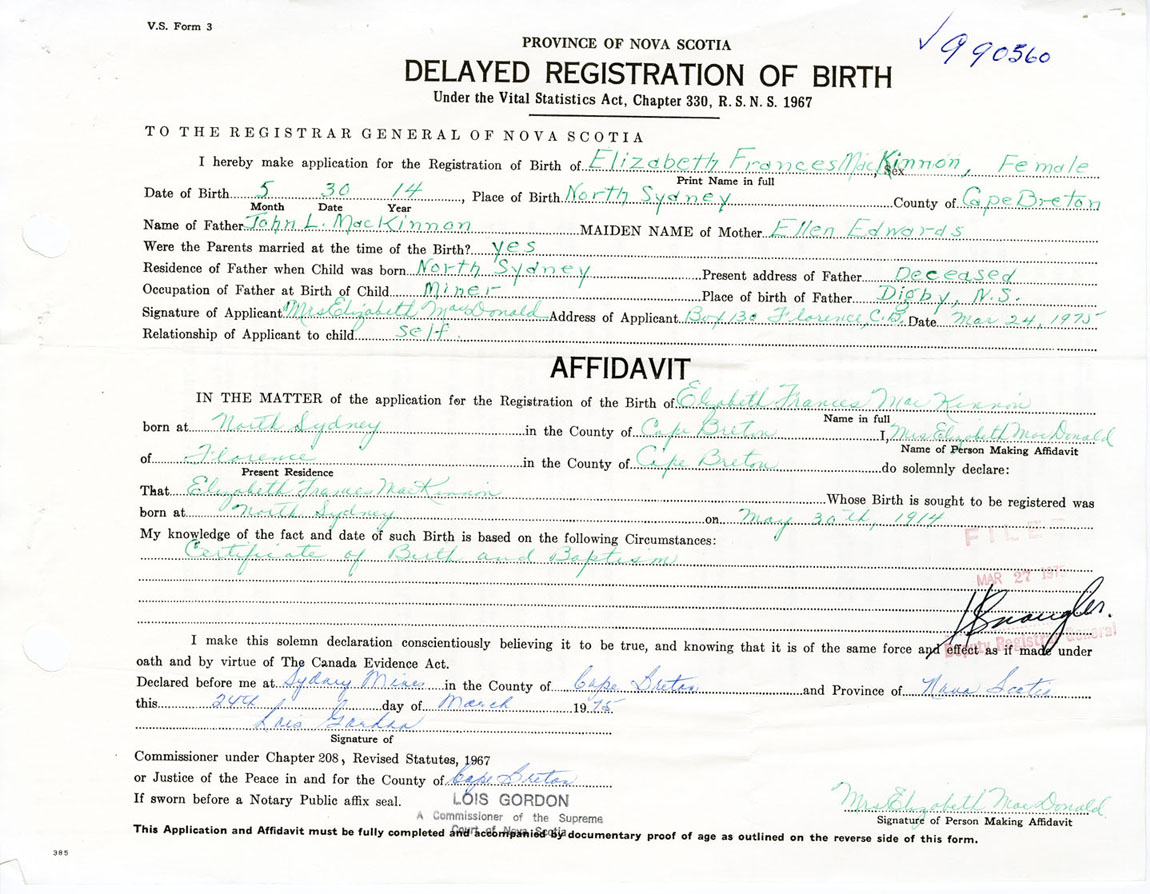 V.S. Form 3
990560
PROVINCE OF NOVA SCOTIA
DELAYED REGISTRATION OF BIRTH
Under the Vital Statistics Act, Chapter 330, R. S. N. S. 1967
TO THE REGISTRAR GENERAL OF NOVA SCOTIA
I hereby make application for the Registration of Birth of Elizabeth Frances MacKinnon, Sex Female
Print Name in full
Date of Birth 5 30 14, Place of Birth North Sydney County of Cape Breton
Month Date Year
Name of Father John L. MacKinnon MAIDEN NAME of Mother Ellen Edwards
Were the Parents married at the time of the Birth? yes
Residence of Father when Child was born North Sydney Present address of Father Deceased
Occupation of Father at Birth of Child Miner Place of birth of Father Digby, N.S.
Signature of Applicant Mrs Elizabeth MacDonald Address of Applicant Box 130 Florence, C.B. Date Mar 24, 1975
Relationship of Applicant to child self
AFFIDAVIT
IN THE MATTER of the application for the Registration of the Birth of Elizabeth Frances MacKinnon
Name in full
born at North Sydney in the County of Cape Breton I, Mrs Elizabeth MacDonald
Name of Person Making Affidavit
of Florence in the County of Cape Breton do solemnly declare:
Present Residence
That Elizabeth Frances MacKinnon Whose Birth is sought to be registered was
born at North Sydney on May 30th, 1914
My knowledge of the fact and date of such Birth is based on the following Circumstances:
Certificate of Birth and Baptism
FILED
MAR 27 1975
Deputy Registrar General
I make this solemn declaration conscientiously believing it to be true, and knowing that it is of the same force and effect as if made under
oath and by virtue of The Canada Evidence Act.
Declared before me at Sydney Mines in the County of Cape Breton and Province of Nova Scotia
this 24th day of March 1975
Lois Gordon
Signature of
Commissioner under Chapter 208, Revised Statutes, 1967
or Justice of the Peace in and for the County of Cape Breton
If sworn before a Notary Public affix seal.
LOIS GORDON
A Commissioner of the Supreme
Court of Nova Scotia
Mrs Elizabeth MacDonald
Signature of Person Making Affidavit
This Application and Affidavit must be fully completed and accompanied by documentary proof of age as outlined on the reverse side of this form.
385